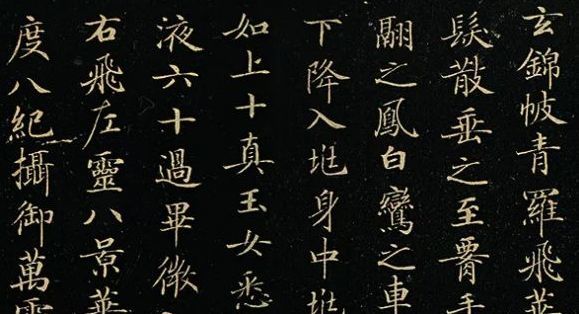 玄錦帔青羅飛華
髮散垂之至腰手
翮之鳳白鸞之車
下降入兆身中兆
如上十真玉女悉
液六十過畢微
右飛左靈八景華
度八紀攝御萬靈